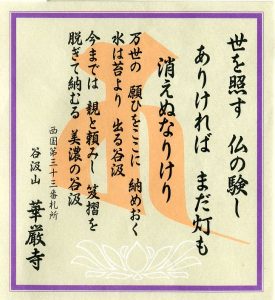 世を照す 仏の験し
ありければ まだ灯も
消えぬなりけり
万世の 願ひをここに 納めおく
水は苔より 出る谷汲
今までは 親と頼みし 笈摺を
脱ぎて納むる 美濃の谷汲
西国第三十三番札所
谷汲山 華厳寺